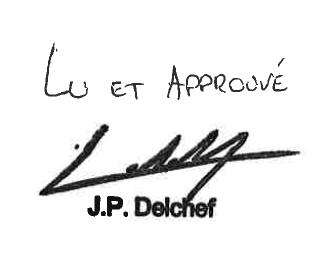 Lu et Approuvé
J.P. Delchef